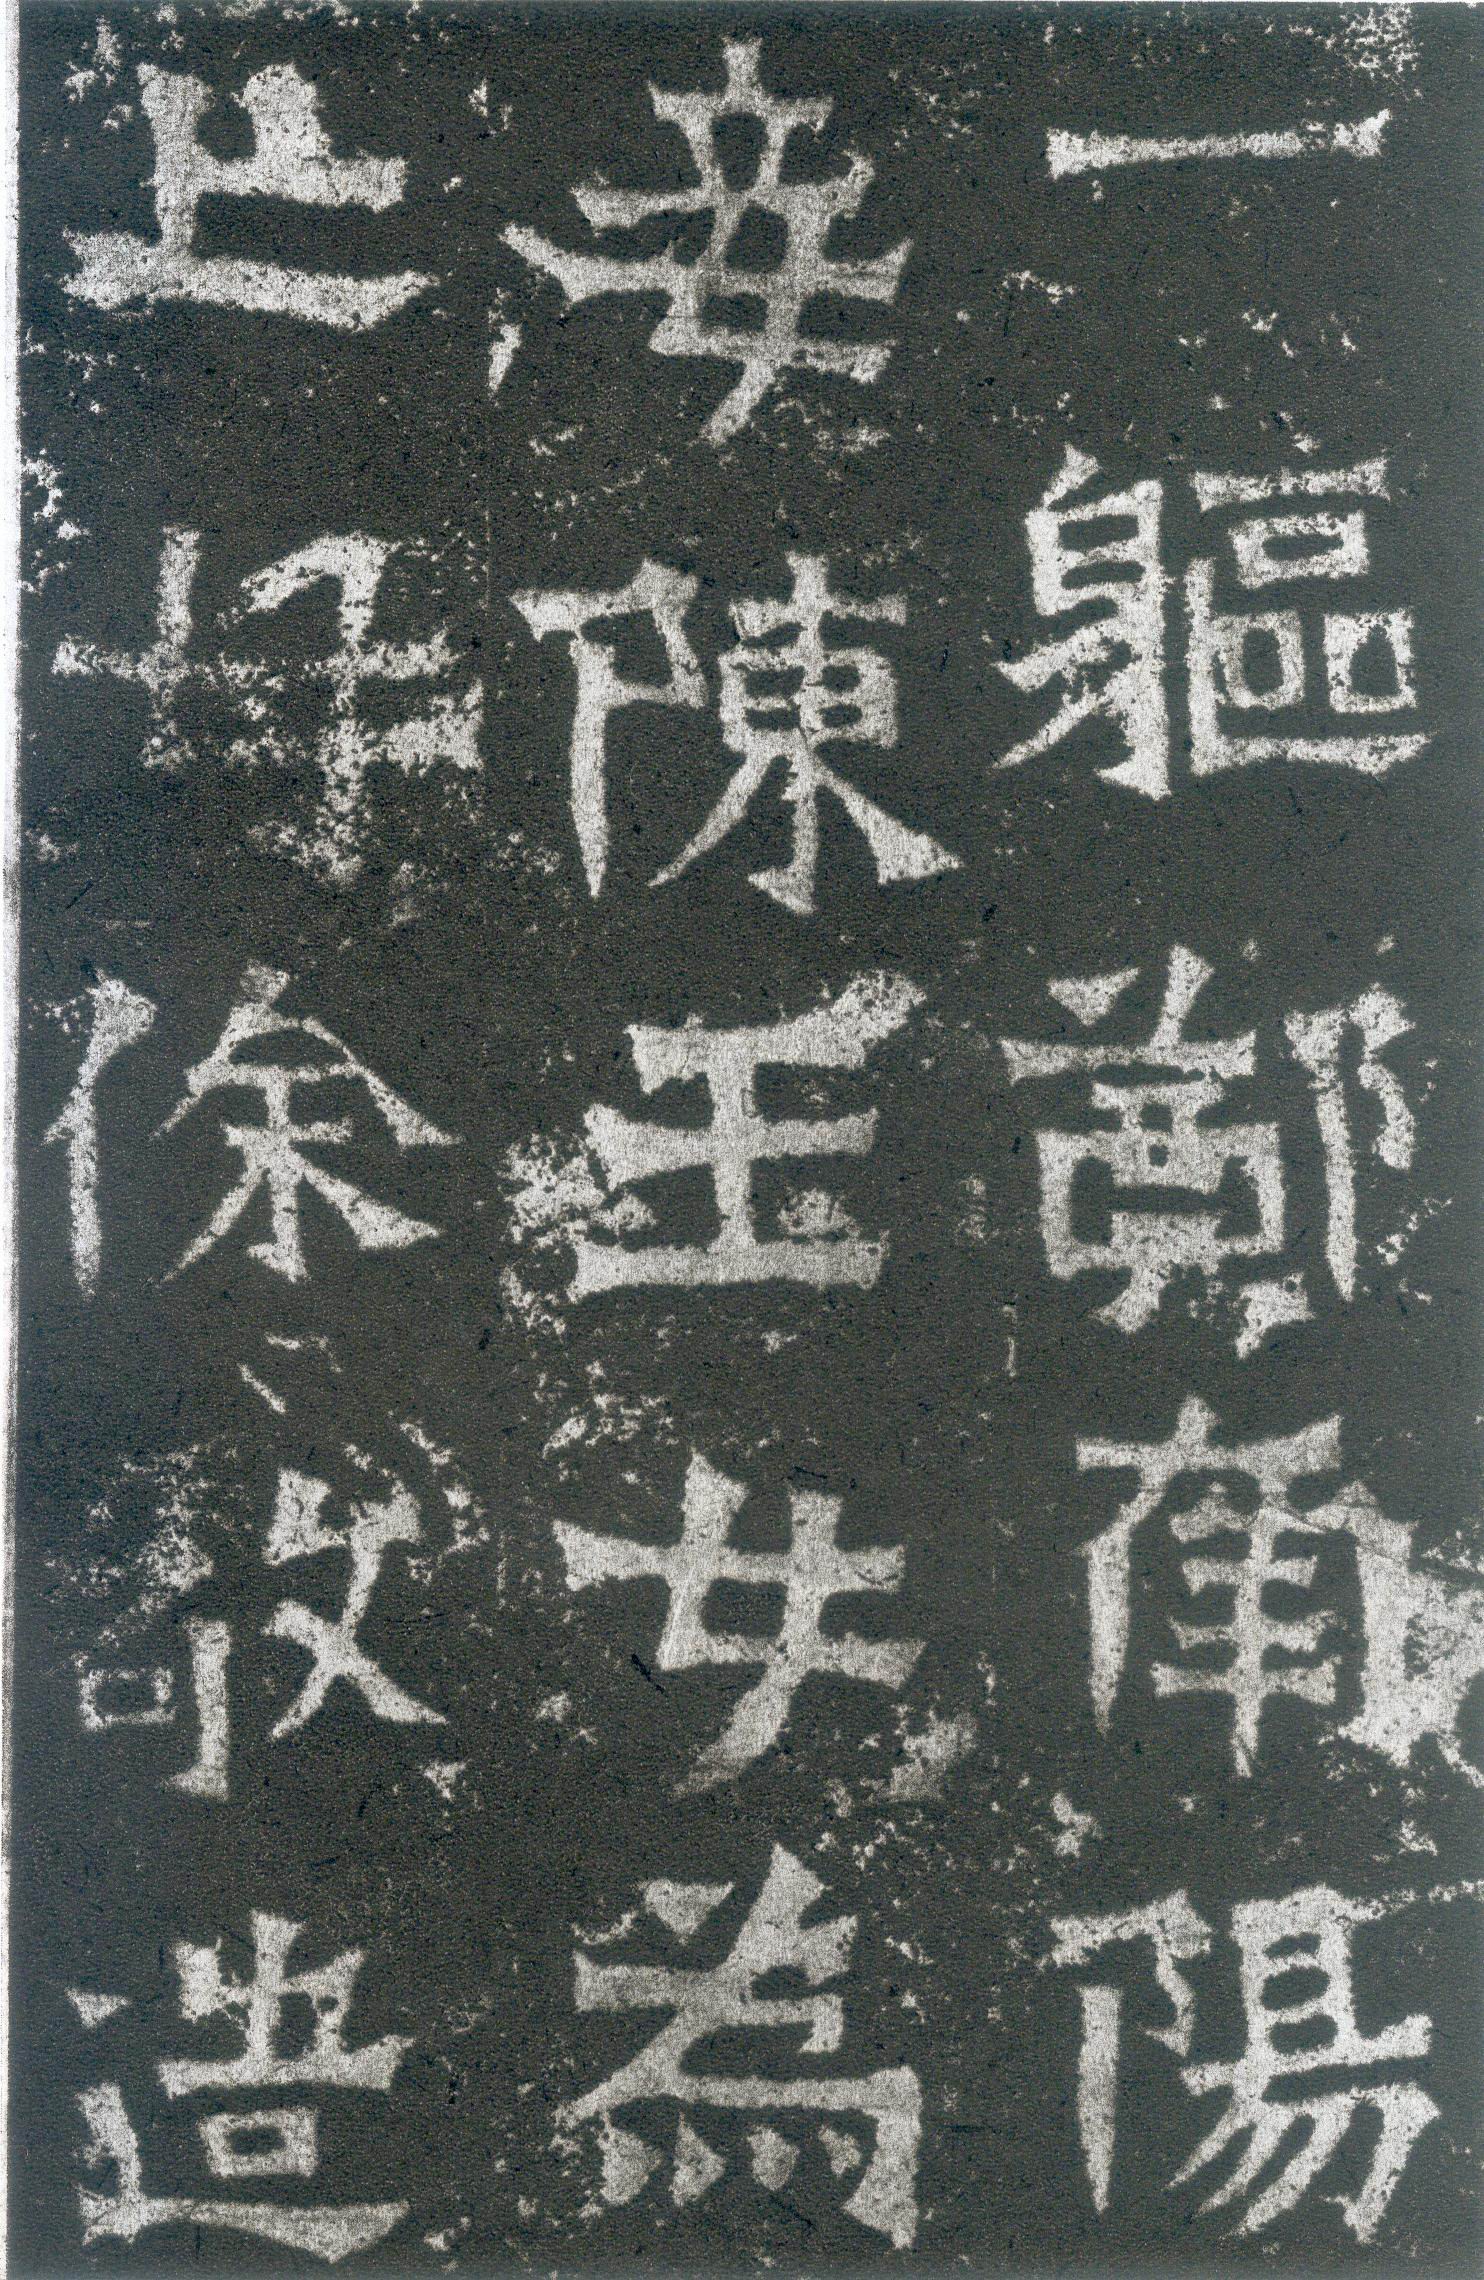 一軀鄭南陽
妾陳王女為
亡母徐敬造